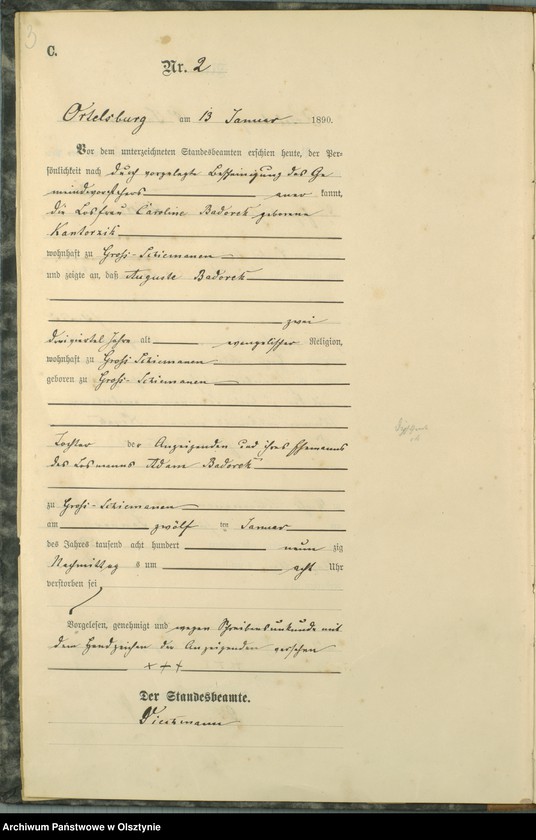 3
C.
Nr. 2
Ortelsburg am 13 Januar 1890.
Vor dem unterzeichneten Standesbeamten erschien heute, der Per-
sönlichkeit nach durch vorgelegte Bescheinigung des Ge
meindevorstehers aner kannt,
die Losfrau Caroline Badorek geborene
Kantorzik
wohnhaft zu Groß-Schiemanen
und zeigte an, daß Auguste Badorek
zwei
dreiviertel Jahre alt evangelischer Religion,
wohnhaft zu Groß Schiemanen
geboren zu Groß-Schiemanen
Tochter der Anzeigenden und ihres Ehemanns
des Losmanns Adam Badorek
zu Groß-Schiemanen
am zwölf ten Januar
des Jahres tausend acht hundert neun zig
Nachmittag s um acht Uhr
verstorben sei
Vorgelesen, genehmigt und wegen Schreibensunkunde mit
dem Handzeichen der Anzeigenden versehen
+ + +
Der Standesbeamte.
Archiwum Państwowe w Olsztynie